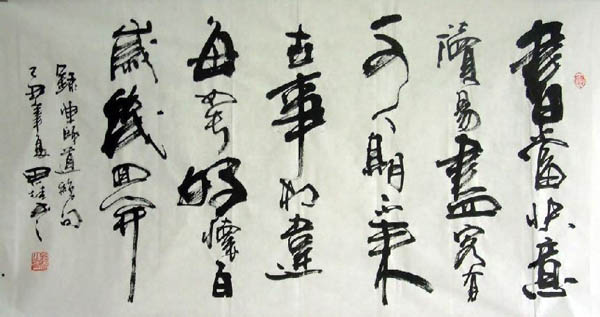 書當快意
讀易盡客有
可人期不来
世事相違
每如此好懷百
歲幾回開
錄陳師道絶句
己丑年夏